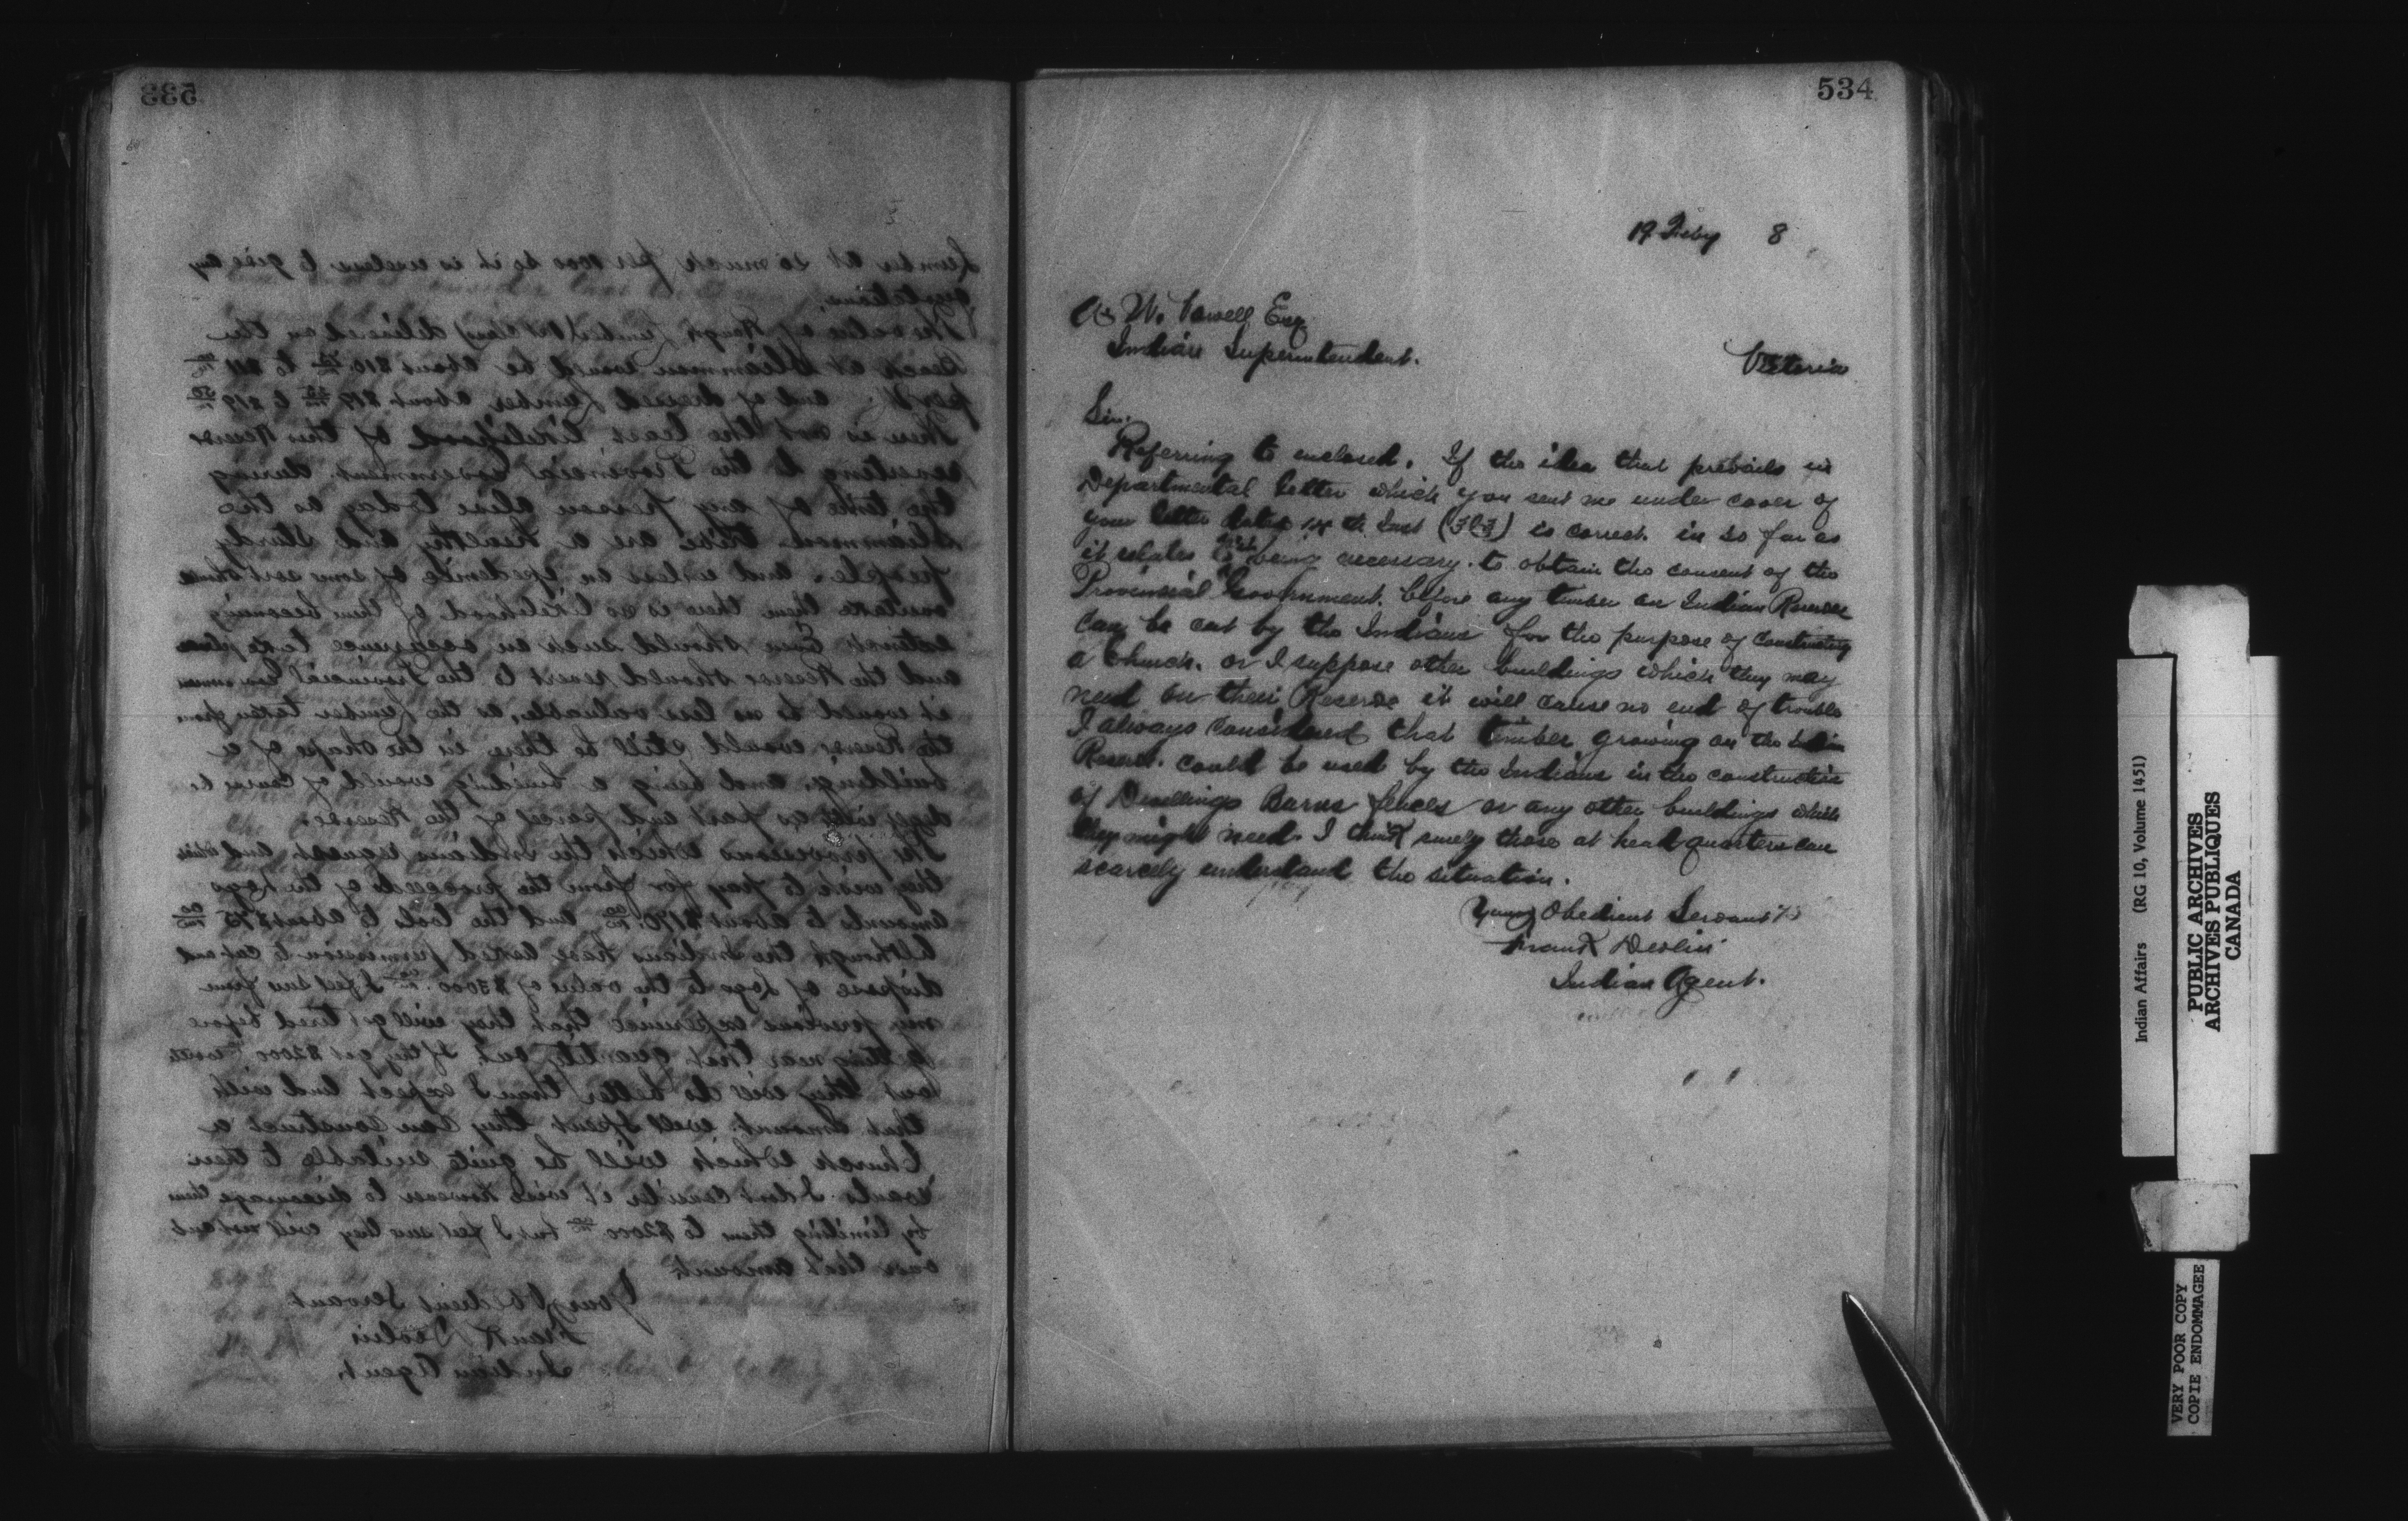 533
Lumber at so much per 1000 so it is useless to give any
quotations.
The value of Rough Lumber delivered on the
Beach at Sliammon would be about $10 to $11
per M. and of dressed Lumber about
There is not the least likelihood of this Reserve
reverting to the Provincial Government during
the time of any person alive today as the
Sliammon tribe are a healthy and sturdy
people and unless an epedemic of some sort should
overtake them there is no likelihood of them becoming
extinct. Even should such an occurence take place
and the Reserve should revert to the Provincial Government
it would be no less valuable, as the Lumber taken from
the Reserve would still be there in the shape of a
building, and being a building would of course be
as part and parcel of the Reserve.
The provisions which the Indians request and which
they wish to pay for from the proceeds of the Logs
amounts to about $170. and the tools to about $75
Although the Indians have asked permission to cut and
dispose of Logs to the value of $3000. I feel sure from
my previous experience that they will get tired before
getting near that quantity out, If they get $2000 worth
out they will do better than I expect and with
that amount well spent they can construct a
Church which will be quite suitable to their
wants. I dont consider it wise however to discourage them
by limiting them to $2000 but I feel sure they will not cut
over that amount.
Your Obedient Servant
Frank Devlin
Indian Agent.
534
19 Feby 8
A W. Vowell Esq
Indian Superintendent. Victoria
Sir.
Referring to enclosed. If the idea that prevails in
Departmental letter which you sent me under cover of
your letter dated 14th Inst (363) is correct in so far as
it relates to it being necessary to obtain the consent of the
Provincial Government before any timber on Indian Reserve
can be cut by the Indians for the purpose of constructing
a Church. or I suppose other buildings which they may
need on their Reserve it will cause no end of trouble
I always considered that timber growing on the Indian
Reserve. could be used by the Indians in the construction
of Dwellings Barns fences or any other buildings which
they might need. I think surely those at head quarters can
scarcely understand the situation.
Your Obedient Servant
Frank Devlin
Indian Agent.
Indian Affairs (RG 10, Volume 1451)
PUBLIC ARCHIVES
ARCHIVES PUBLIQUES
CANADA
VERY POOR COPY
COPIE ENDOMMAGEE